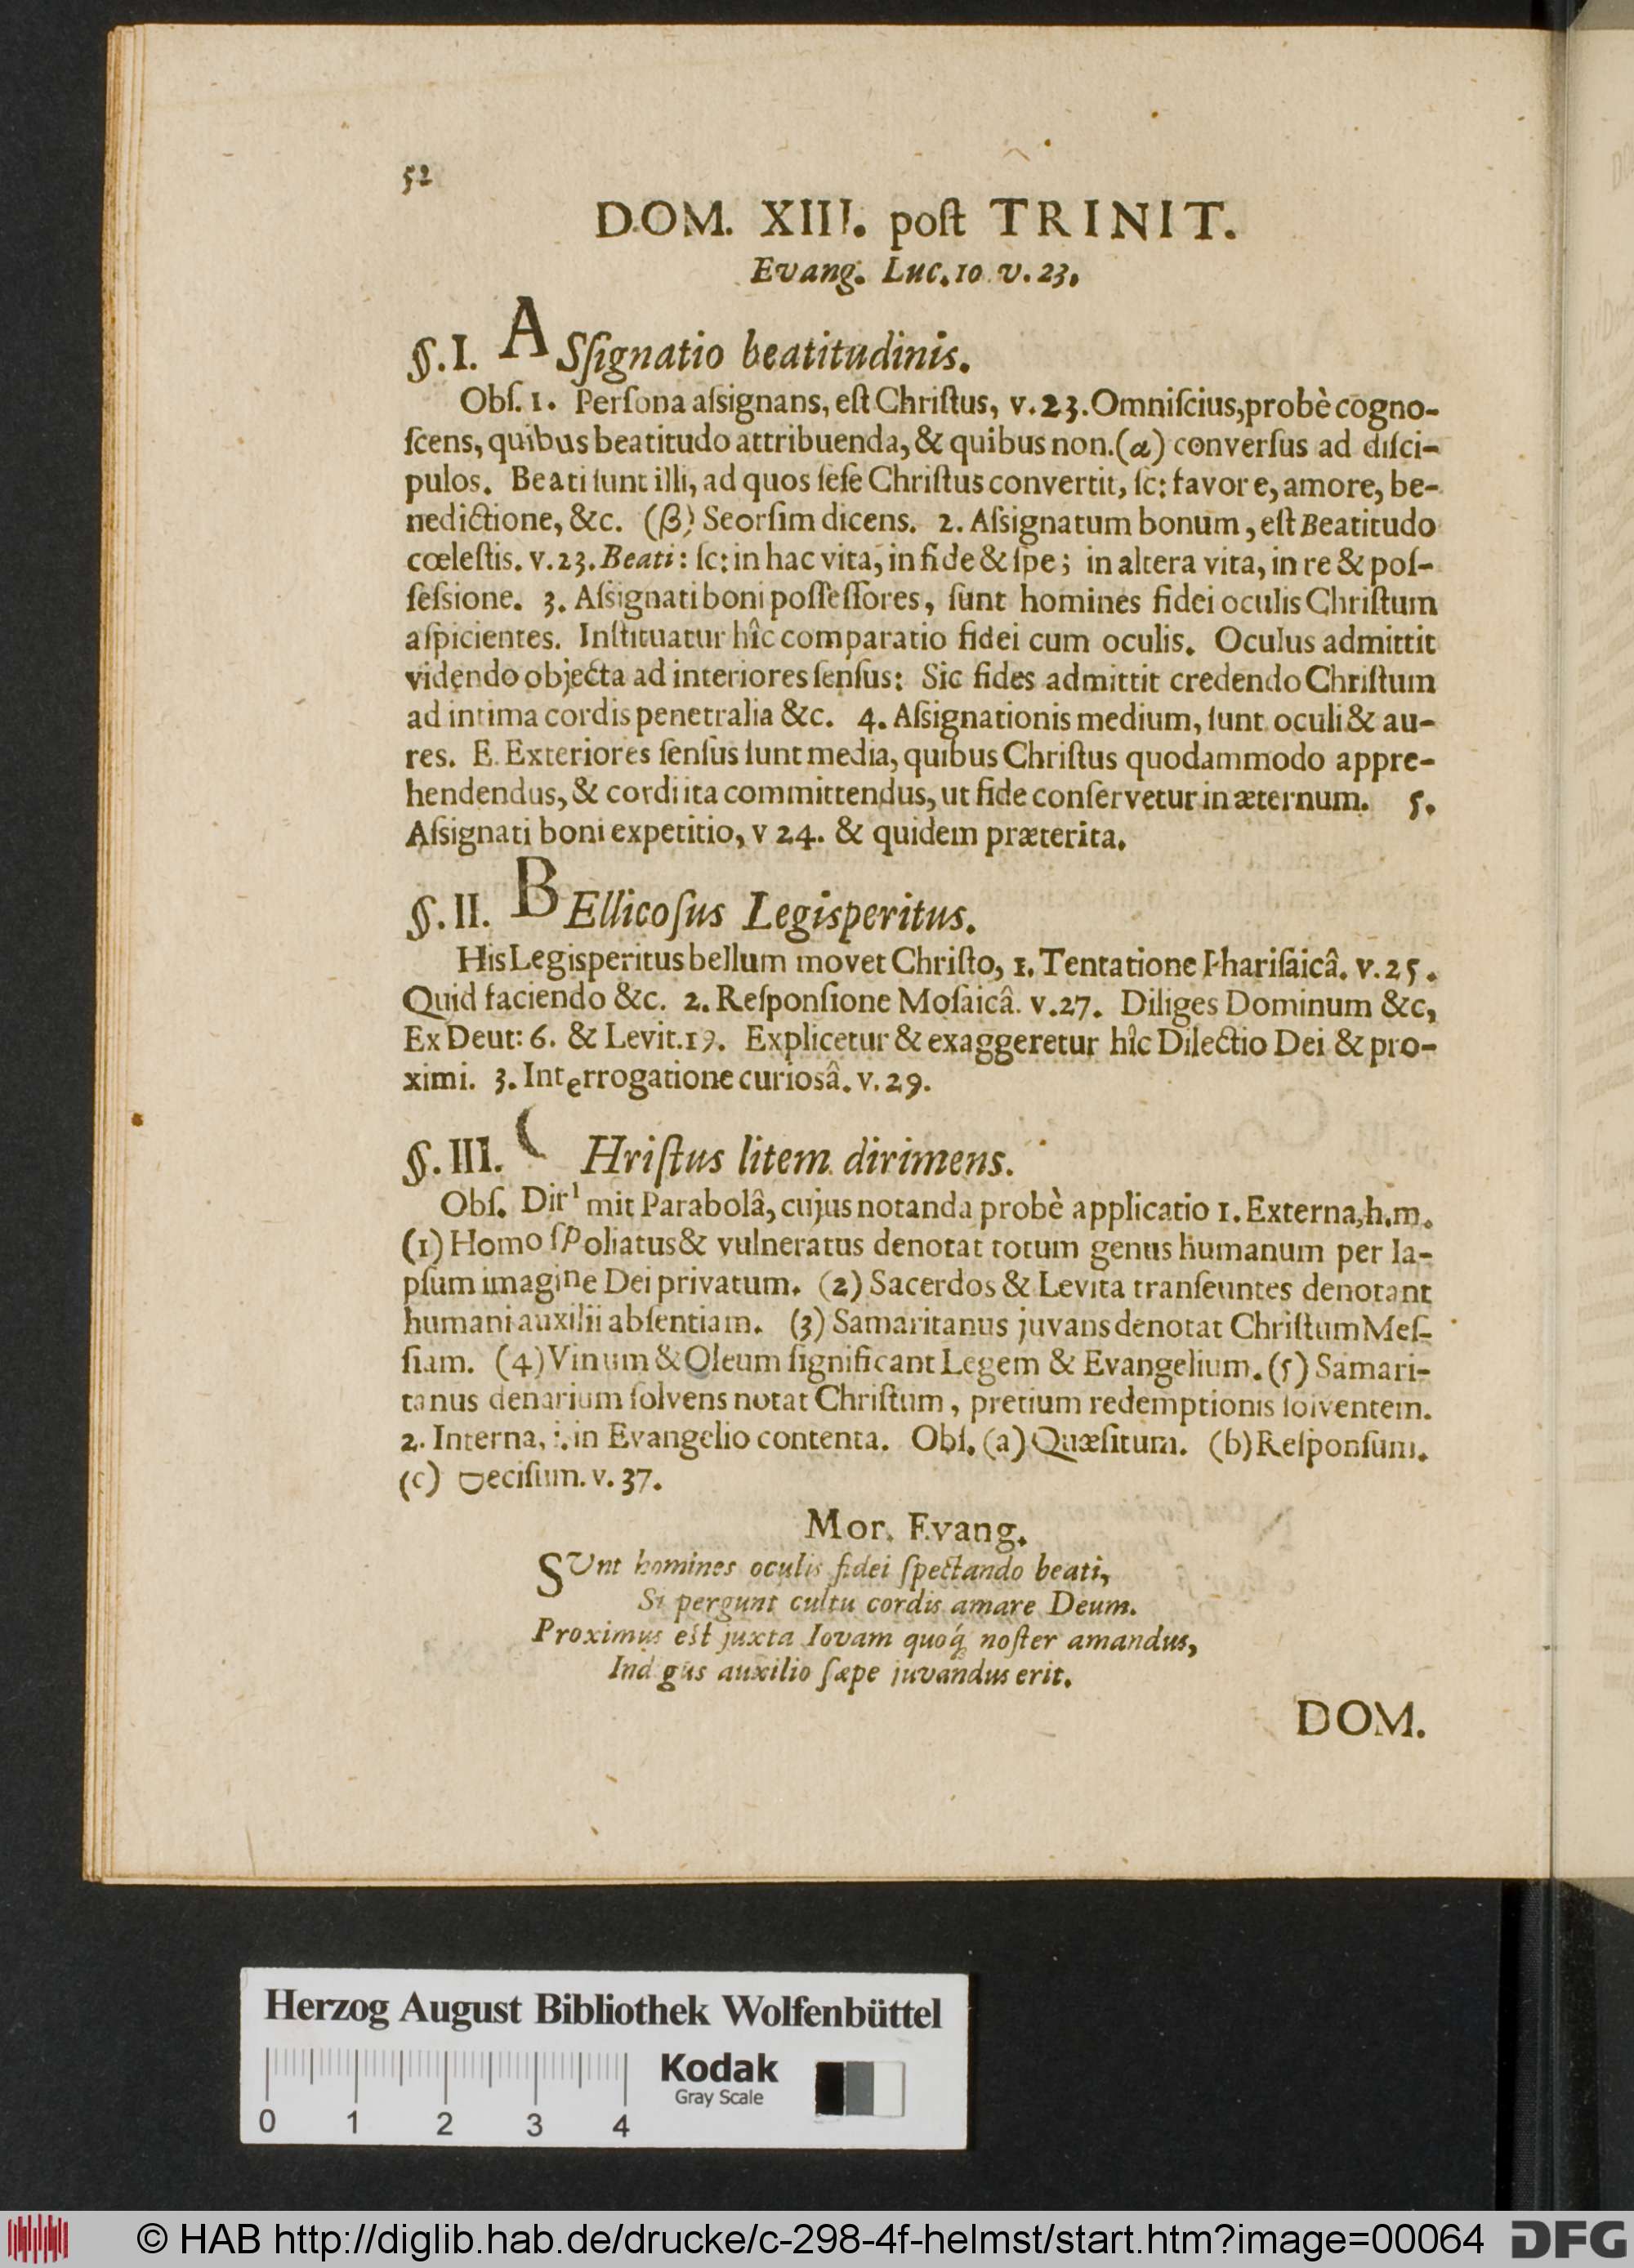 52
DOM. XIII. poſt TRINIT.
Evang. Luc. 10 v. 23.
§. I. ASſignatio beatitudinis.
Obſ. 1. Perſona aſsignans, eſt Chriſtus, v. 23. Omniſcius, probè cogno-
ſcens, quibus beatitudo attribuenda, & quibus non. (α) converſus ad diſci-
pulos. Beati ſunt illi, ad quos ſeſe Chriſtus convertit, ſc: favore, amore, be-
nedictione, &c. (β) Seorſim dicens. 2. Aſsignatum bonum, eſt Beatitudo
cœleſtis. v. 23. Beati: ſc: in hac vita, in fide & ſpe; in altera vita, in re & poſ-
ſeſsione. 3. Aſsignati boni poſſeſſores, ſunt homines fidei oculis Chriſtum
aſpicientes. Inſtituatur hîc comparatio fidei cum oculis. Oculus admittit
videndo objecta ad interiores ſenſus: Sic fides admittit credendo Chriſtum
ad intima cordis penetralia &c. 4. Aſsignationis medium, ſunt oculi & au-
res. E. Exteriores ſenſus ſunt media, quibus Chriſtus quodammodo appre-
hendendus, & cordi ita committendus, ut fide conſervetur in æternum. 5.
Aſsignati boni expetitio, v 24. & quidem præterita.
§. II. BEllicoſus Legisperitus.
His Legisperitus bellum movet Chriſto, 1. Tentatione Phariſaicâ. v. 25.
Quid faciendo &c. 2. Reſponſione Moſaicâ. v. 27. Diliges Dominum &c,
Ex Deut: 6. & Levit. 19. Explicetur & exaggeretur hîc Dilectio Dei & pro-
ximi. 3. Interrogatione curiosâ. v. 29.
§. III. CHriſtus litem dirimens.
Obſ. Dirimit Parabolâ, cujus notanda probè applicatio 1. Externa, h. m.
(1) Homo ſpoliatus & vulneratus denotat totum genus humanum per la-
pſum imagine Dei privatum. (2) Sacerdos & Levita tranſeuntes denotant
humani auxilii abſentiam. (3) Samaritanus juvans denotat Chriſtum Meſ-
ſiam. (4) Vinum & Oleum ſignificant Legem & Evangelium. (5) Samari-
tanus denarium ſolvens notat Chriſtum, pretium redemptionis ſolventem.
2. Interna, i. in Evangelio contenta. Obſ. (a) Quæſitum. (b) Reſponſum.
(c) Deciſum. v. 37.
Mor. Evang.
SUnt homines oculis fidei ſpectando beati,
Si pergunt cultu cordis amare Deum.
Proximus eſt juxta Iovam quoq́; noſter amandus,
Indigus auxilio ſæpe juvandus erit.
DOM.
Herzog August Bibliothek Wolfenbüttel
Kodak
Gray Scale
0 1 2 3 4
© HAB http://diglib.hab.de/drucke/c-298-4f-helmst/start.htm?image=00064
DFG